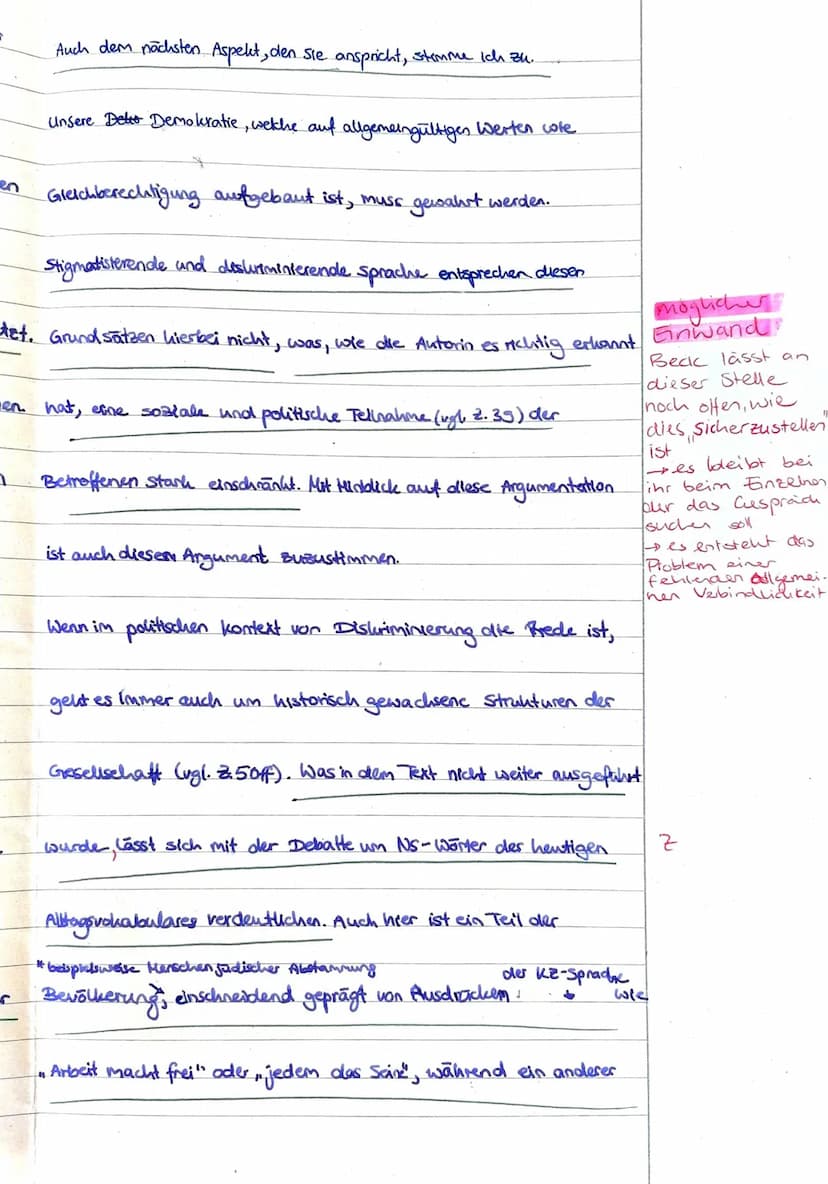 Auch dem nächsten Aspekt, den sie anspricht, stimme ich zu.
Unsere Demokratie, welche auf allgemeingültigen Werten wie
en
Gleichberechtigung aufgebaut ist, muss gewahrt werden.
Stigmatisierende und diskriminierende Sprache entsprechen diesen
tet.
Grundsätzen hierbei nicht, was, wie die Autorin es richtig erkannt
en
hat, eine soziale und politische Teilnahme (vgl. Z. 39) der
Betroffenen stark einschränkt. Mit Hinblick auf diese Argumentation
ist auch diesem Argument zuzustimmen.
Wenn im politischen Kontext von Diskriminierung die Rede ist,
geht es immer auch um historisch gewachsene Strukturen der
Gesellschaft (vgl. Z. 50ff). Was in dem Text nicht weiter ausgeführt
wurde, lässt sich mit der Debatte um NS-Wörter der heutigen
Alltagsvokabulares verdeutlichen. Auch hier ist ein Teil der
* beispielsweise Menschen jüdischer Abstammung
der KZ-Sprache
Bevölkerung*, einschneidend geprägt von Ausdrücken wie
r
"Arbeit macht frei" oder "jedem das Seine", während ein anderer
möglicher
Einwand:
Beck lässt an
dieser Stelle
noch offen, wie
dies "sicherzustellen"
ist
→ es bleibt bei
ihr beim Einzelnen
der das Gespräch
suchen soll
→ es entsteht das
Problem einer
fehlenden Allgemei-
nen Verbindlichkeit
Z